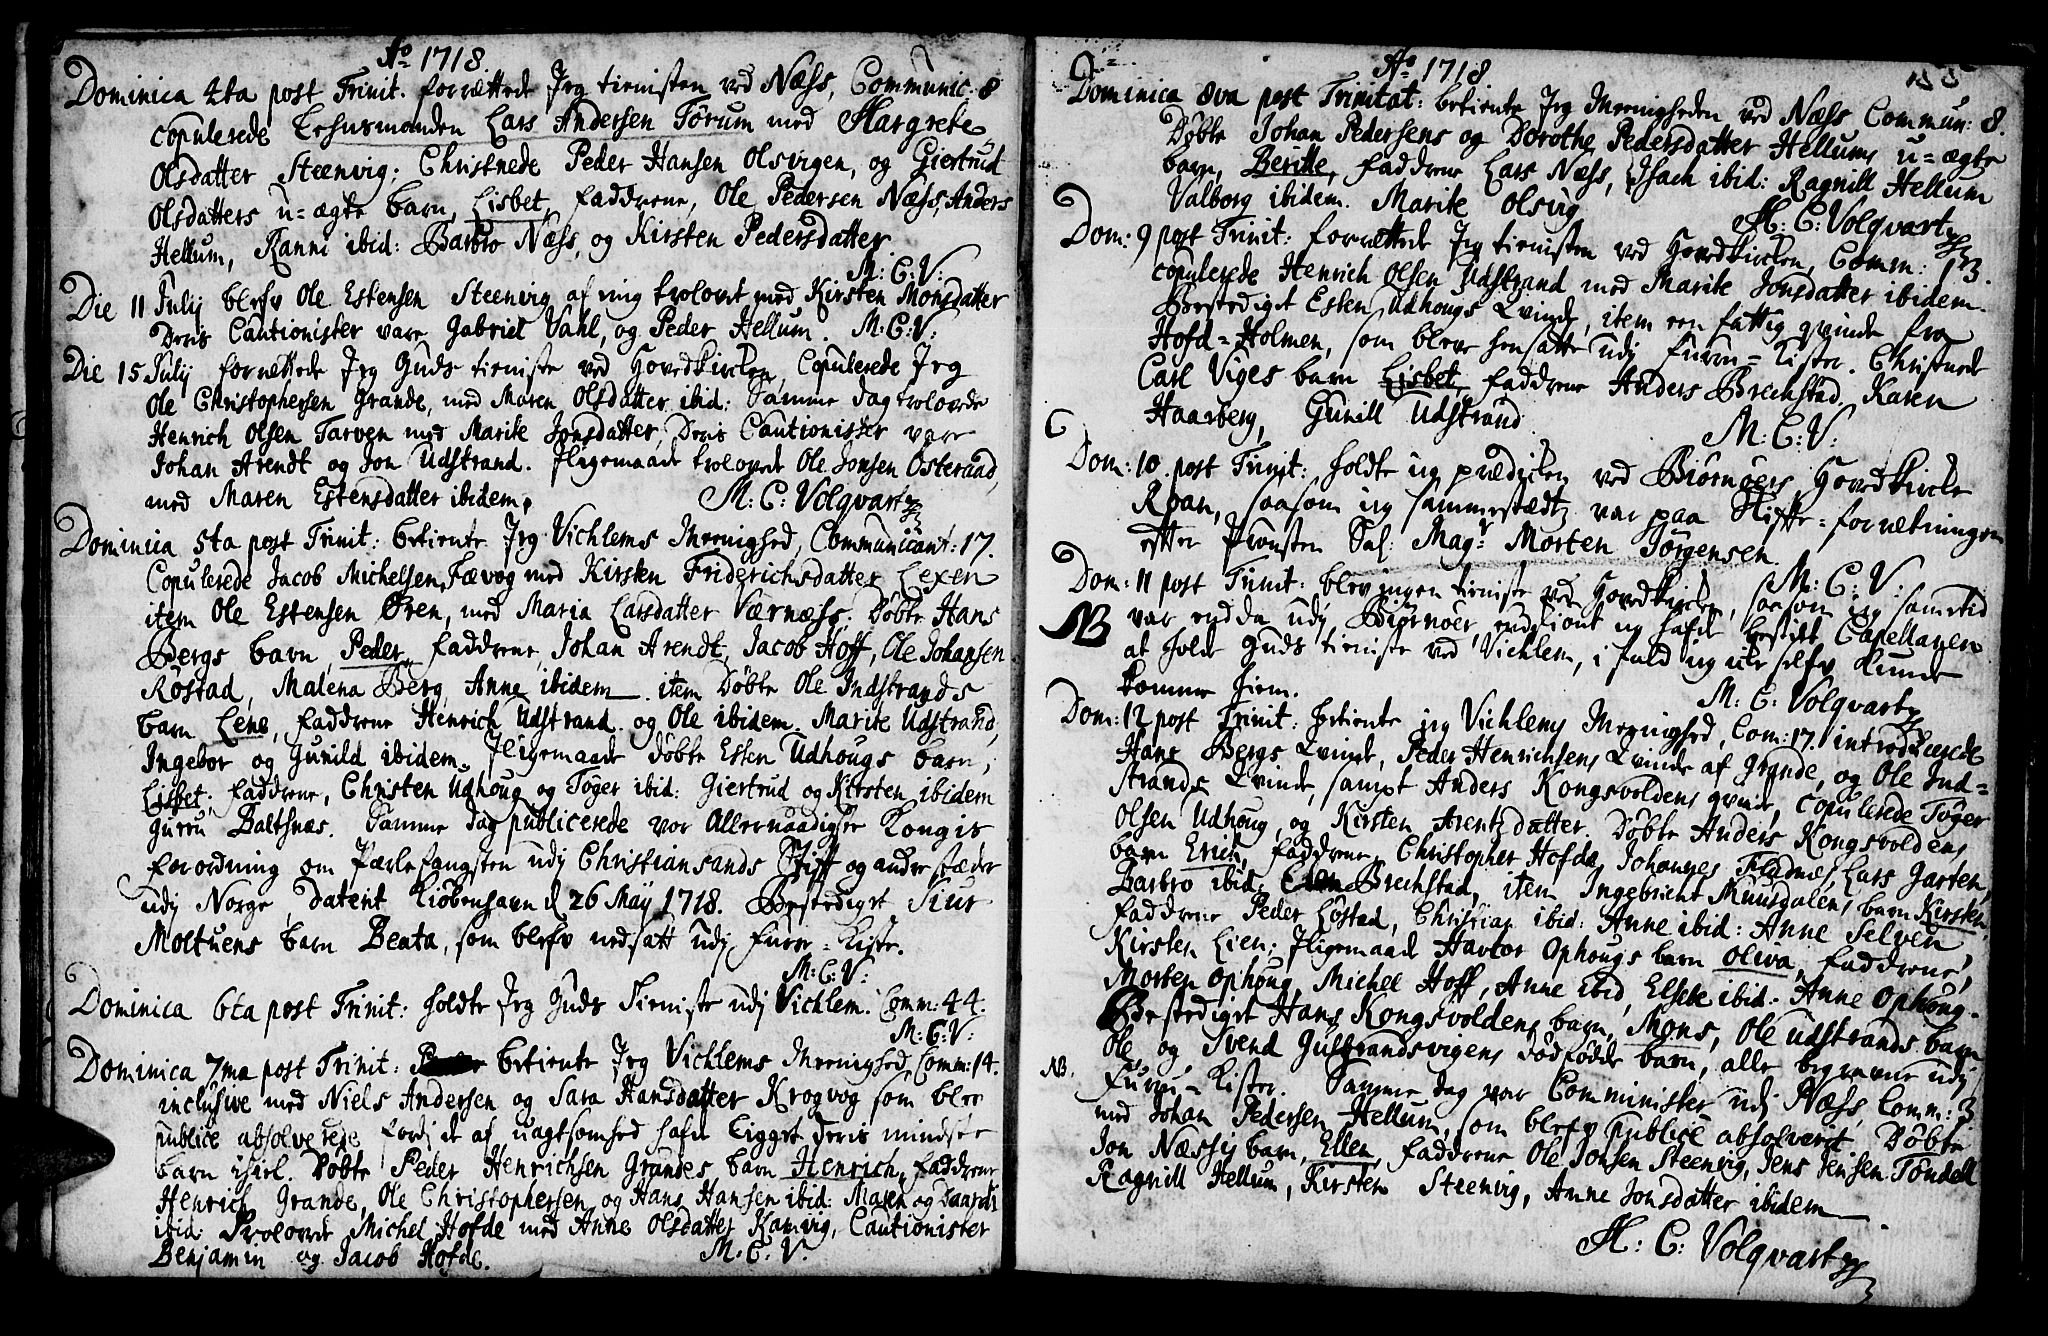 Ao 1718.
Dominica 4ta post Trinit. forrættede Jeg tienisten ved Næss, Communic: 8
copulerede Lehnsmanden Lars Andersen Torum med Margrete
Olsdatter Steenvig; Christnede Peder Hansen Olsvigen, og Giertrud
Olsdatters u=ægte barn, Lisbet, faddrene, Ole Pedersen Næss, Anders
Hellum, Ranni ibid: Barbro Næss, og Kirsten Pedersdatter
M: C: V:
Die 11 Julij blefv Ole Estensen Steenvig af mig trolovet med Kirsten Monsdatter
Deris Cautionister vare Gabriel Vahl, og Peder Hellum. M: C: V:
Die 15 Julij forrættede Jeg Guds tieniste ved Hovedkircken, Copulerede Jeg
Ole Christophersen Grande, med Maren Olsdatter ibid: Samme dag trolovede
Henrich Olsen Tarven med Marite Jonsdatter, Deris Cautionister vare
Johan Arendt og Jon Udstrand. Jligemaade trolovede Ole Jonsen Østeraad,
med Maren Estensdatter ibidem. M: C: Volqvartz
Dominica 5ta post Trinit: betiente Jeg Vichlems Meenighed, Communicant: 17.
Copulerede Jacob Michelsen Fævog med Kirsten Friderichsdatter Lexen
item Ole Estensen Øren, med Maria Larsdatter Værnæss; Døbte Hans
Bergs barn, Peder, faddrene, Johan Arendt, Jacob Hoff, Ole Johansen
Røstad, Malena Berg, Anne ibidem. item Døbte Ole Indstrands
barn Lene, faddrene Henrich Udstrand og Ole ibidem. Marite Udstrand,
Ingebor og Gunild ibidem. Jligemaade døbte Esten Udhougs barn,
Lisbet, faddrene, Christen Udhoug og Tøger ibid: Giertrud og Kirsten ibidem
Guru Baltsnæs. Samme dag publicerede vor Allernaadigste Kongis
forordning om Pærlefangsten udj Christiansands Stift og andre stæder
udj Norge, datert Kiøbenhavn d 26 Maÿ 1718. Bestediget Siur
Moltuens barn Beata, som blefv nedsatt udj furre=Kiste.
M: C: V:
Dominica 6ta post Trinit: holdte Jeg Guds Tieniste udj Vichlem. Comm: 44.
M: C: V:
Dominica 7ma post Trinit: betiente Jeg Vichlems Meenighed, Comm: 14.
inclusive med Niels Andersen og Sara Hansdatter Krogvog som blev
publice absolverede fordj de af uagtsomhed hafde ligget deris mindste
barn ihiel. Døbte Peder Henrichsen Grandes barn Henrich, faddrene
Henrich Grande, Ole Christophersen og Hans Hansen ibid: Maren og
ibid: Trolovet Michel Hofde med Anne Olsdatter Kamvig, Cautionister
Benjamin og Jacob Hofde. M: C: V.
Ao 1718
Dominica 8va post Trinitat: betiente Jeg Meenigheden ved Næss Commun: 8.
Døbte Johan Pedersens og Dorothe Pedersdatter Hellums u=ægte
barn, Beritte, faddrene Lars Næss, Isach ibid: Ragnill Hellum
Valborg ibidem. Marite Olsvig. M: C: Volqvartz
Dom: 9 post Trinit: forrættede Jeg tienisten ved Hovedkircken, Comm: 13.
copulerede Henrich Olsen Udstrand med Marite Jonsdatter ibidem.
Bestediget Esten Udhougs Qvinde, item een fattig qvinde fra
Hofd=Holmen, som bleve hensatte udj furu=Kister. Christnede
Carl Viges barn Lisbet, faddrene Anders Brechstad, Karen
Haarberg, Gunill Udstrand
M: C: V:
Dom: 10 post Trinit: holdte ieg prædicken ved Biørnøers Hovedkircke
Roan, saasom ieg sammestædtz var paa Skifte=forretningen
efter Provsten Sal: Magr Morten Jørgensen.
M: C: V:
Dom: 11 post Trinit: blev ingen tieniste ved Hovedkircken, saasom ieg samme tid
NB var endda udj Biørnøer, endskiønt ieg hafde bestilt Capellanen
at holde Guds tieniste ved Vichlem, i fald ieg icke selfv kunde
komme hiem.
M: C: Volqvartz
Dom: 12 post Trinit: betiente jeg Vichlems Meenighed, Com: 17. introducerede
Hans Bergs Qvinde, Peder Henrichsens Qvinde af Grande, og Ole Ind=
strands Qvinde, sampt Anders Kongsvoldens qvinde, copulerede Tøger
Olsen Udhoug, og Kirsten Arentzdatter. Døbte Anders Kongsvoldens
barn Erich, faddrene Christopher Hofde, Johannes Fladnes, Lars Garten,
Barbro ibid: Brechstad, item Ingebricht Muusdalens barn Kirsten,
faddrene Peder Løstad, Christian ibid: Anne ibid: Anne Selven
Kirsten Lien; Jligemaade Havtor Ophougs barn Oliva, faddrene,
Morten Ophoug, Michel Hoff, Anne ibid, Elsebe ibid. Anne Ophoug.
Bestediget Hans Kongsvoldens barn, Mons, Ole Udstrands barn
Ole, og Svend Gustrandsvigens dødfødde barn, alle begravne udj
NB. furru=Kister. Samme dag var Comminister udj Næss, Comm: 3
med Johan Pedersen Hellum, som blefv publice absolveret. Døbte
Jon Næssis barn, Ellen, faddrene Ole Jonsen Steenvig, Jens Jensen Tøndell
Ragnill Hellum, Kirsten Steenvig, Anne Jonsdatter ibidem.
M: C: Volqvartz